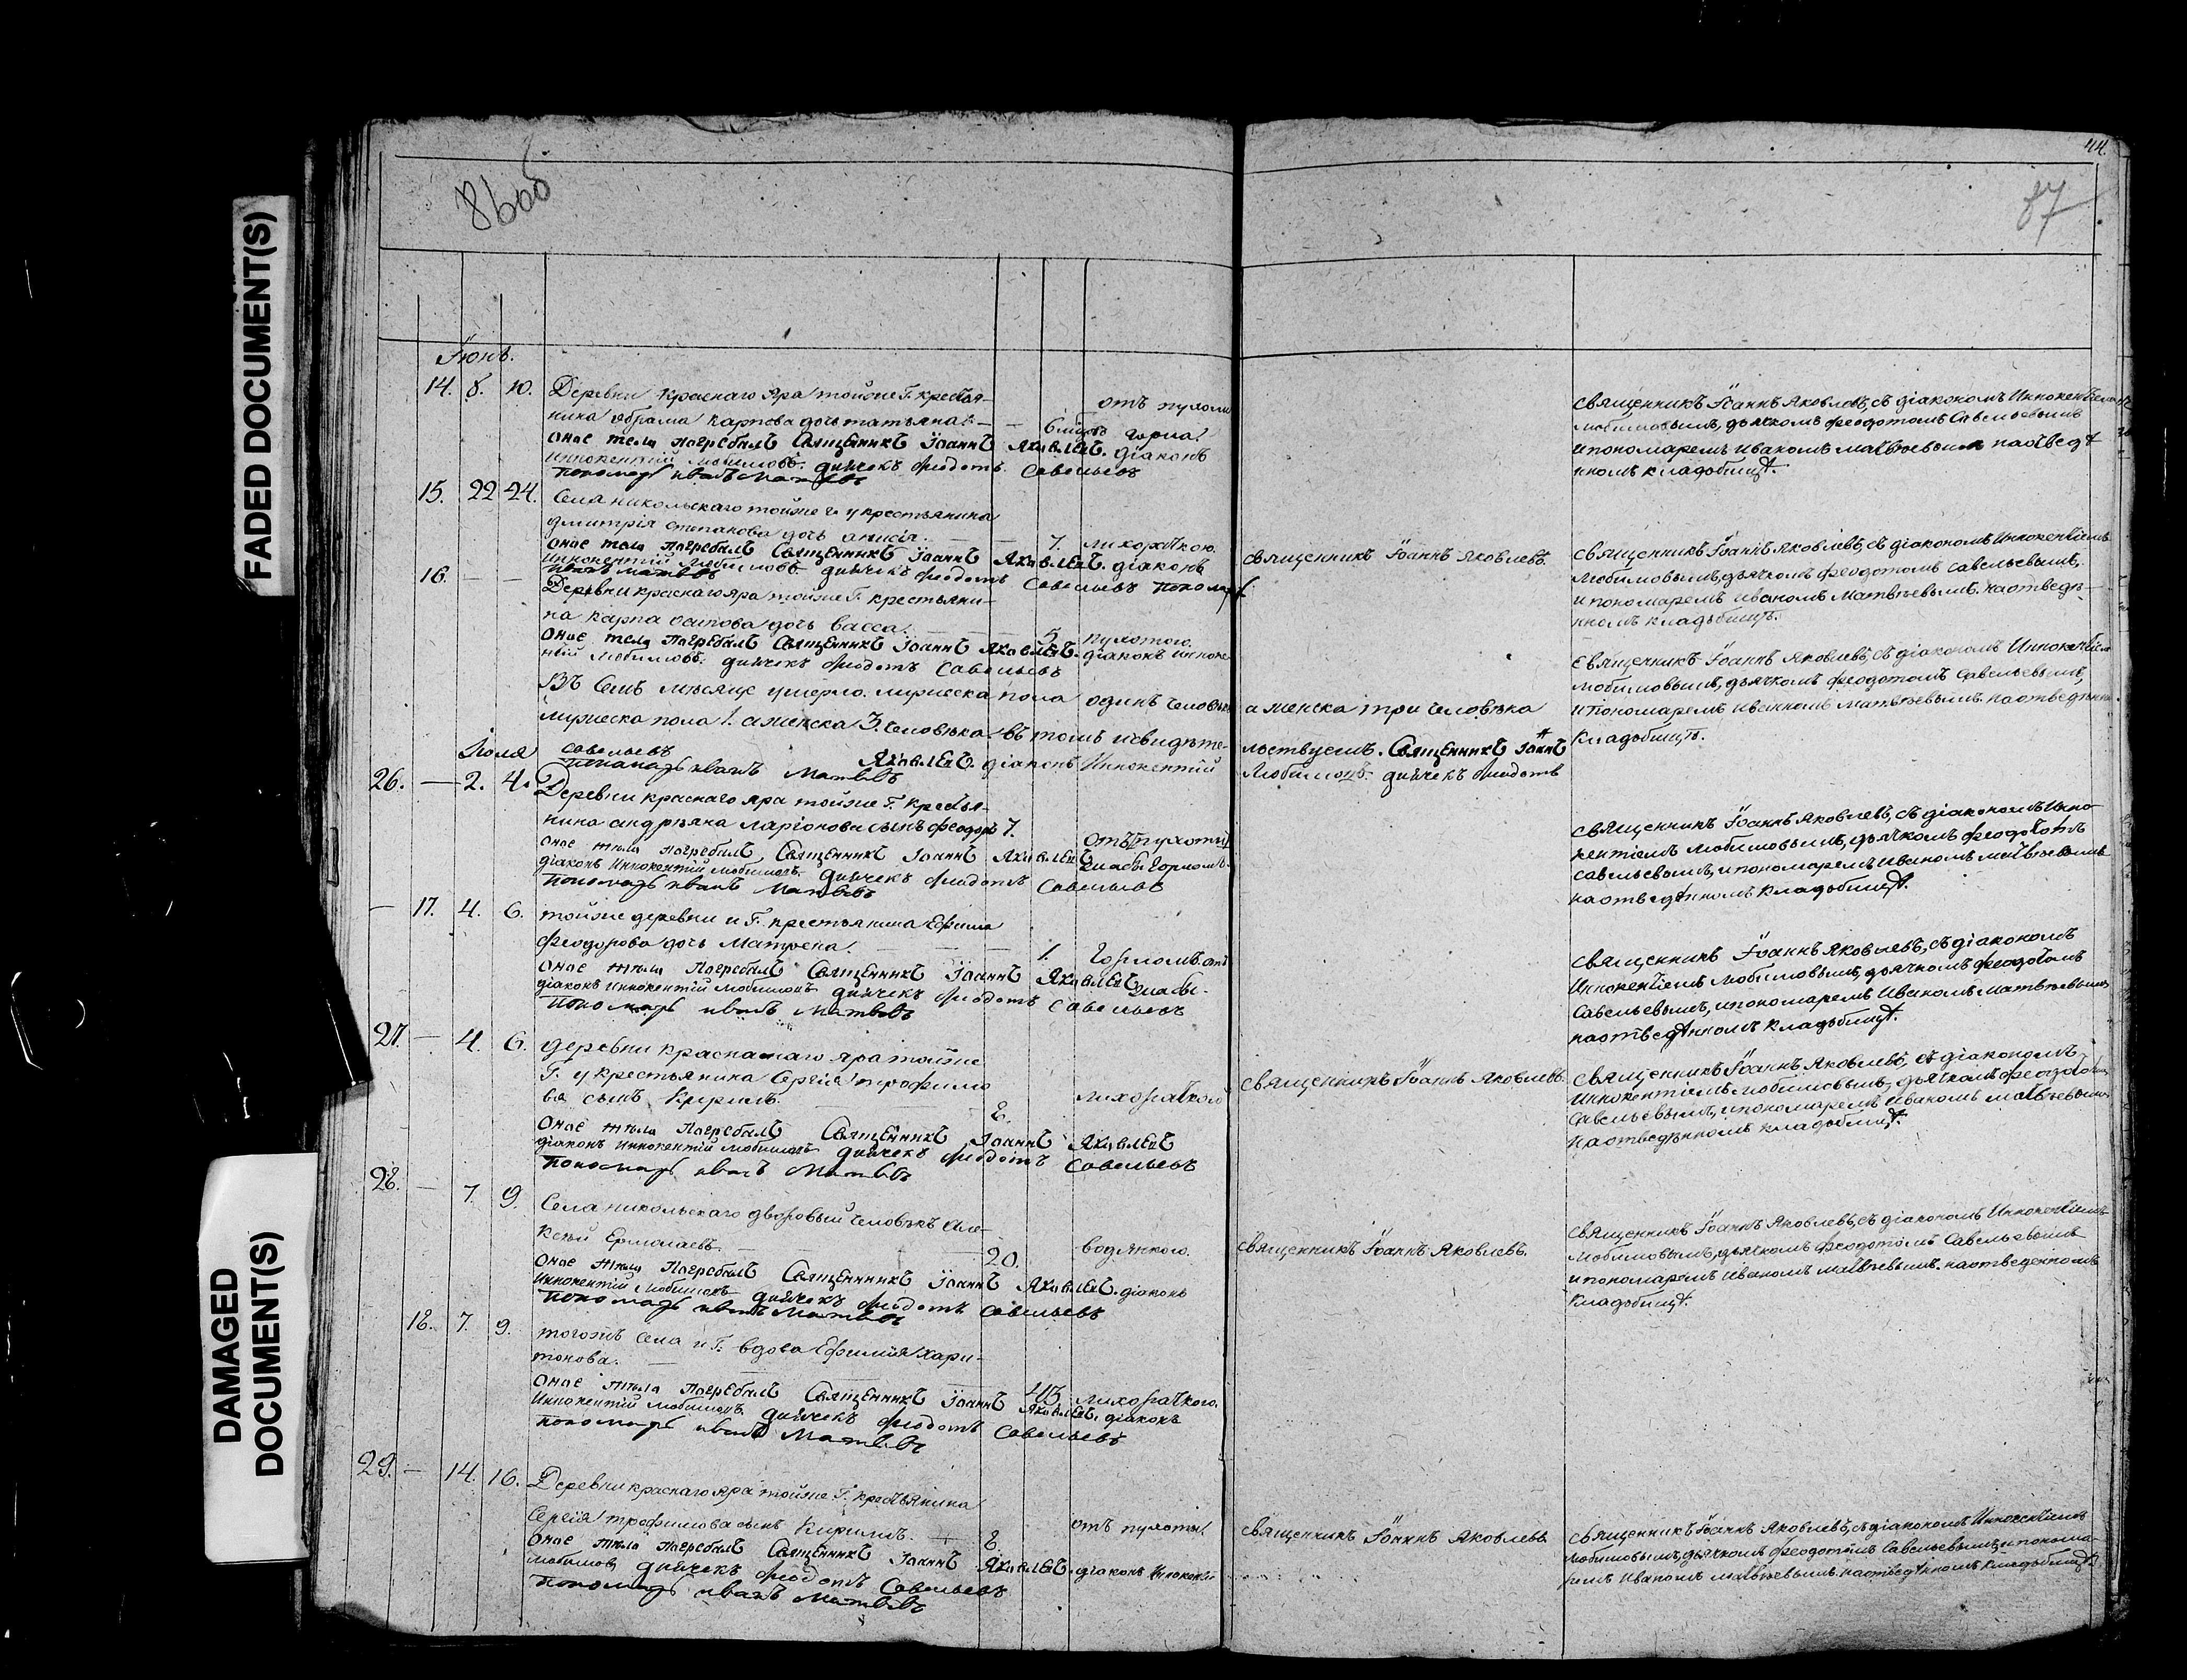 FADED DOCUMENT(S)
DAMAGED DOCUMENT(S)
44.
86 об
87
Іюнь.
14. 8. 10. Деревни Краснаго Яра тойже Г. крестья-
нина Абрама Карпова дочь татьяна. — — 6 отъ
горла.
Оное тела Погребалъ Священникъ Іоаннъ Яковлевъ. діаконъ
Иннокентій Любимовъ. дьячекъ Феодотъ Савельевъ
Пономарь иванъ Матвѣевъ
священникъ Іоаннъ Яковлевъ, съ діакономъ Иннокентіемъ
Любимовымъ, дьячкомъ Феодотомъ Савельевымъ
и пономаремъ Иваномъ Матвѣевымъ на отведѣ
нномъ кладбищѣ.
15. 22 24. Села никольскаго тойже Г. у крестьянина
дмитрія степанова дочь анисія. — — 7. лихораткою.
Оное тела Погребалъ Священникъ Іоаннъ Яковлевъ. діаконъ
Иннокентій Любимовъ. дьячекъ Феодотъ Савельевъ Пономарь
иванъ матвѣевъ
священникъ Іоаннъ Яковлевъ.
священникъ Іоаннъ Яковлевъ, съ діакономъ Иннокентіемъ
Любимовымъ, дьячкомъ Феодотомъ Савельевымъ,
и пономаремъ Иваномъ Матвѣевымъ. на отведѣ-
нномъ кладбищѣ.
16. — — Деревни краснаго яра тойже Г. крестьяни-
на карпа осипова дочь васса. — — 5.
Оное тела Погребалъ Священникъ Іоаннъ Яковлевъ. діаконъ Инноке-
нтій Любимовъ. дьячекъ Феодотъ Савельевъ
священникъ Іоаннъ Яковлевъ, съ діакономъ Иннокентіемъ
Любимовымъ, дьячкомъ Феодотомъ Савельевымъ,
и пономаремъ Иваномъ Матвѣевымъ. на отведѣнномъ
кладбищѣ.
Въ Семъ мѣсяцѣ умерло. мужеска пола одинъ человѣкъ а женска три человѣка
мужеска пола 1. а женска 3. человѣка. въ томъ и свидѣте- льствуемъ. Священникъ Іоаннъ
Яковлевъ. діаконъ Иннокентій Любимовъ. дьячекъ Феодотъ
савельевъ
пономарь иванъ Матвѣевъ
Іюля
26. — 2. 4. Деревни краснаго яра тойже Г. крестья-
нина андрѣяна ларіонова сынъ феодоръ 7.
Оное тѣла Погребалъ Священникъ Іоаннъ Яковлевъ
діаконъ Иннокентій Любимовъ. дьячекъ Феодотъ Савельевъ
Пономарь иванъ Матвѣевъ
священникъ Іоаннъ Яковлевъ, съ діакономъ Инно-
кентіемъ Любимовымъ, дьячкомъ Феодотомъ
Савельевымъ, и пономаремъ Иваномъ Матвѣевымъ
на отведѣнномъ кладбищѣ.
— 17. 4. 6. тойже деревни и Г. крестьянина Ефима
Феодорова дочь Матрена. — — 1.
Оное тѣла Погребалъ Священникъ Іоаннъ Яковлевъ
діаконъ Иннокентій Любимовъ дьячекъ Феодотъ Савельевъ
Пономарь иванъ Матвѣевъ
священникъ Іоаннъ Яковлевъ, съ діакономъ
Иннокентіемъ Любимовымъ, дьячкомъ Феодотомъ
Савельевымъ, и пономаремъ Иваномъ Матвѣевымъ
на отведѣнномъ кладбищѣ.
27. — 4. 6. деревни краснаго яра тойже
Г. у крестьянина Сергія трофимо
ва сынъ Кирилъ. — 8. лихораткою
Оное тѣла Погребалъ Священникъ Іоаннъ Яковлевъ
діаконъ Иннокентій Любимовъ дьячекъ Феодотъ Савельевъ
Пономарь иванъ Матвѣевъ
священникъ Іоаннъ Яковлевъ.
священникъ Іоаннъ Яковлевъ, съ діакономъ
Иннокентіемъ Любимовымъ, дьячкомъ Феодотомъ
Савельевымъ, и пономаремъ Иваномъ Матвѣевымъ
на отведѣнномъ кладбищѣ.
28. — 7. 9. Села никольскаго дворовый человѣкъ Але-
ксѣй Ермолаевъ. — 20. водянкою.
Оное тѣла Погребалъ Священникъ Іоаннъ Яковлевъ. діаконъ
Иннокентій Любимовъ дьячекъ Феодотъ Савельевъ
Пономарь иванъ Матвѣевъ
священникъ Іоаннъ Яковлевъ.
священникъ Іоаннъ Яковлевъ, съ діакономъ Иннокентіемъ
Любимовымъ, дьячкомъ Феодотомъ Савельевымъ
и пономаремъ Иваномъ Матвѣевымъ. на отведенномъ
кладбищѣ.
18. 7. 9. тогожъ Села и Г. вдова Ефимия Хари-
тонова. — лихораткою.
Оное тѣла Погребалъ Священникъ Іоаннъ Яковлевъ. діаконъ
Иннокентій Любимовъ дьячекъ Феодотъ Савельевъ
пономарь иванъ Матвѣевъ
29. — 14. 16. Деревни краснаго яра тойже Г. крестьянина
Сергія трофимова сынъ Кирилъ. — 8. отъ
Оное тѣла Погребалъ Священникъ Іоаннъ Яковлевъ. діаконъ Иннокентій
Любимовъ дьячекъ Феодотъ Савельевъ
Пономарь иванъ Матвѣевъ
священникъ Іоаннъ Яковлевъ
священникъ Іоаннъ Яковлевъ, съ діакономъ Иннокентіемъ
Любимовымъ, дьячкомъ Феодотомъ Савельевымъ, и понома-
ремъ Иваномъ Матвѣевымъ. на отведѣнномъ кладбищѣ.